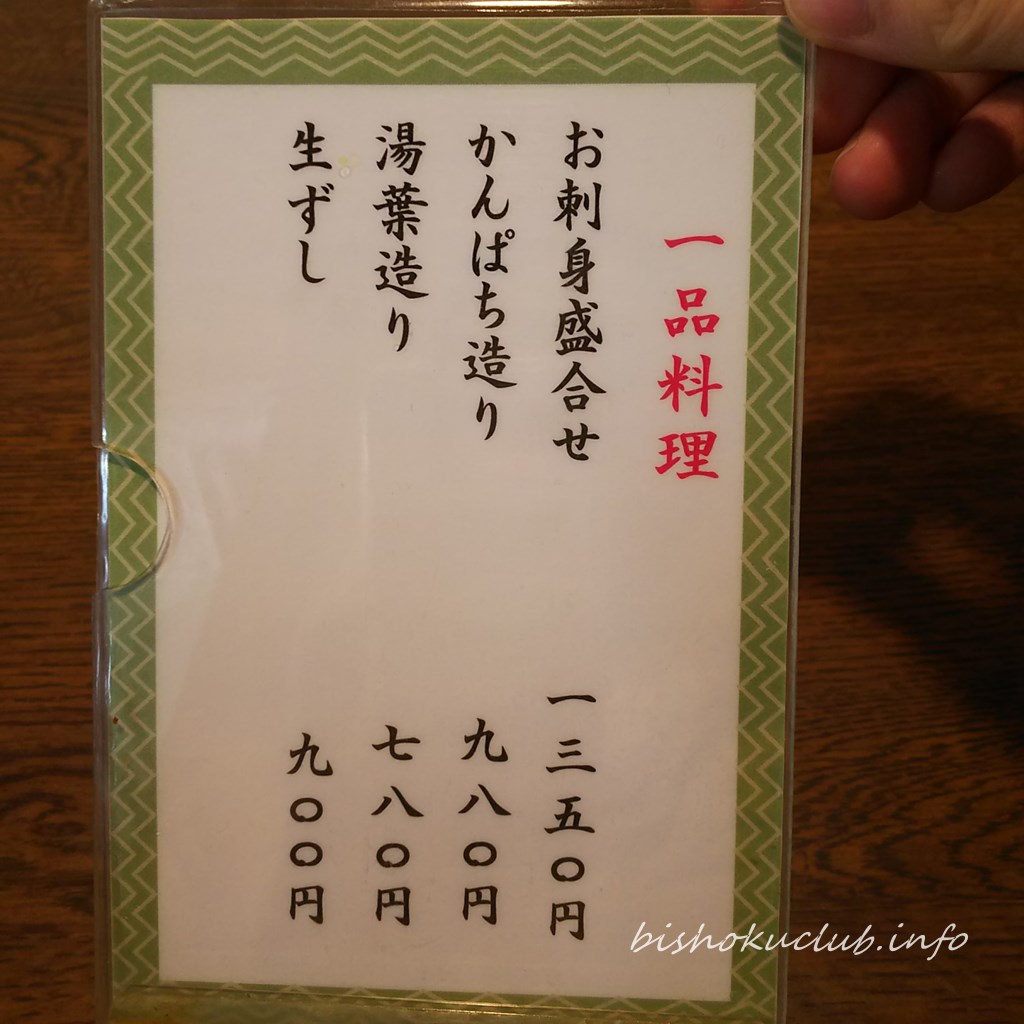 一品料理
お刺身盛合せ 一三五〇円
かんぱち造り 九八〇円
湯葉造り 七八〇円
生ずし 九〇〇円
bishokuclub.info